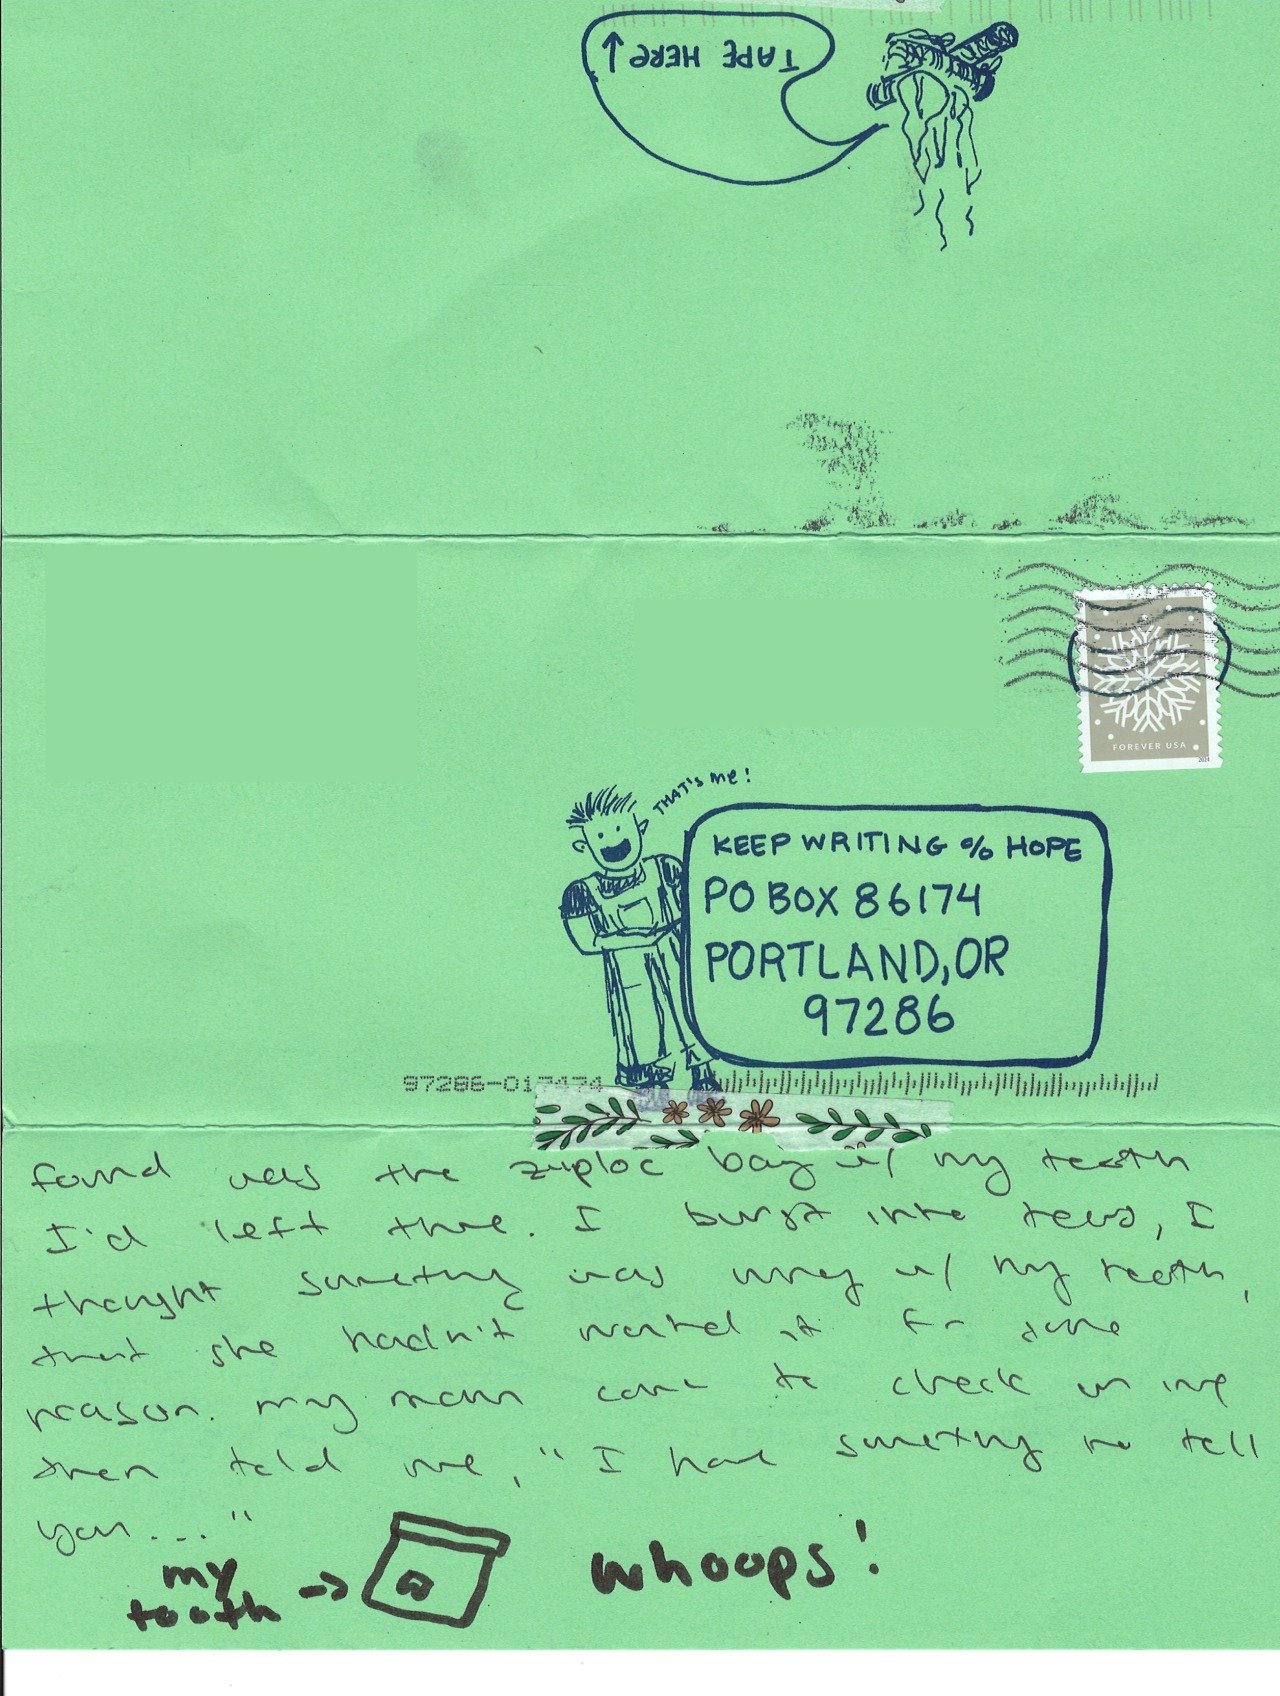 TAPE HERE ↓
FOREVER USA
2024
THAT'S me!
KEEP WRITING % HOPE
PO BOX 86174
PORTLAND, OR
97286
97286-017474
found was the ziploc bag w/ my teeth
I'd left there. I burst into tears, I
thought something was wrong w/ my teeth,
that she hadn't wanted it for some
reason. my mom came to check on me
then told me, "I have something to tell
you..."
my
tooth → whoops!